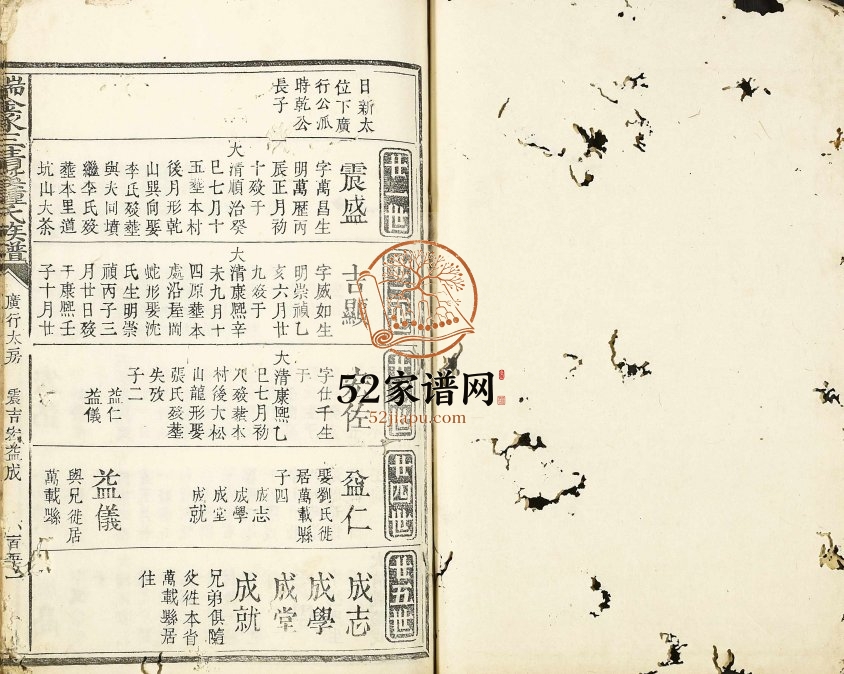 日新太
位下廣
行公派
時乾公
長子
廿一世
震盛
字萬昌生
明萬歷丙
辰正月初
十歿于
大清順治癸
巳七月十
五塟本村
後月形乾
山巽向娶
李氏歿塟
與夫同墳
繼李氏歿
塟本里道
坑山大茶
吉顯
字威如生
明崇禎乙
亥六月廿
九歿于
大清康熈辛
未九月十
四原塟本
處沿崖岡
蛇形娶沈
氏生明崇
禎丙子三
月廿日歿
于康熈壬
子十月廿
佐
字仕千生
于
大清康熈乙
巳七月初
六歿塟本
村後大松
山龍形娶
張氏歿塟
失攷
子二
益仁
益儀
廿四世
益仁
娶劉氏徙
居萬載縣
子四
成志
成學
成堂
成就
益儀
與兄徙居
萬載縣
廿五世
成志
成學
成堂
成就
兄弟俱隨
父徃本省
萬載縣居
住
族譜
廣行太房
震吉 益成
52家谱网
52jiapu.com